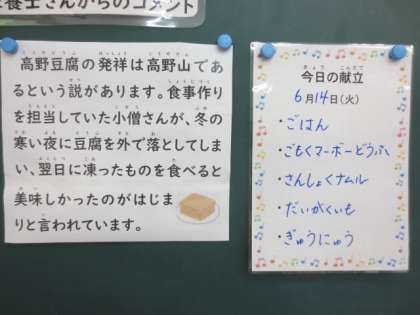 養士さんからのコメント
高野豆腐の発祥は高野山であ
るという説があります。食事作り
を担当していた小僧さんが、冬の
寒い夜に豆腐を外で落としてしま
い、翌日に凍ったものを食べると
美味しかったのがはじま
りと言われています。
今日の献立
6月14日(火)
・ごはん
・ごもくマーボーどうふ
・さんしょくナムル
・だいがくいも
・ぎゅうにゅう